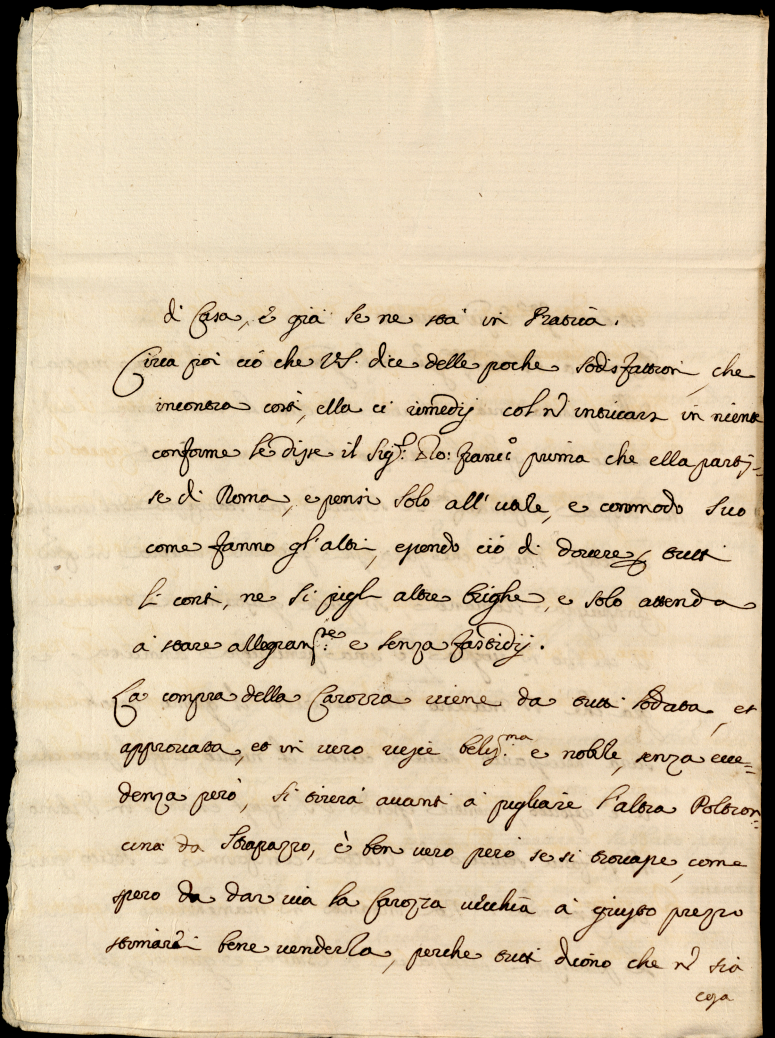 di Casa, è già se ne stà in Pratica.
Circa poi ciò che VS. dice delle poche sodisfattioni, che
incontra costì, ella ci rimedij col nõ intricarsi in niente
conforme le disse il Sig.r Gio: Franc.o prima che ella partis=
se di Roma, e pensi solo all'utile, e commodo suo
come fanno gl'altri, essendo ciò di dovere p tutti
li conti, ne si pigli altre brighe, e solo attenda
à stare allegram.te e senza fastidij.
La compra della Carozza viene da tutti lodata, et
approvata, et in vero riesce beliss.ma e nobile, senza ecce=
denza però, si tirerà avanti à pigliare l'altra Poltron=
cina da strapazzo, è ben vero però se si trovasse, come
spero da dar via la Carozza vecchia à giusto prezzo
stimarei bene venderla, perche tutti dicono che nõ sia
cosa